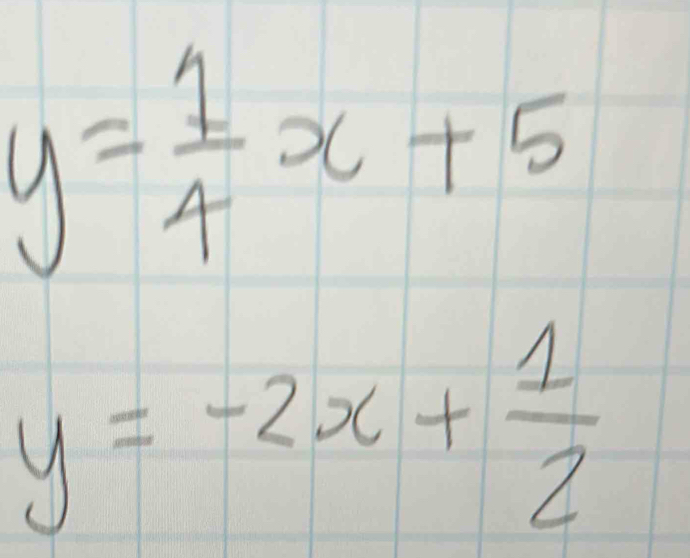 y = 1/4 x + 5
y = -2x + 1/2